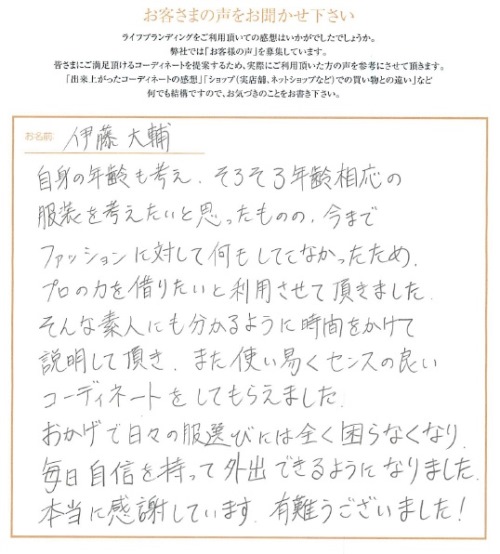 お客さまの声をお聞かせ下さい
ライフブランディングをご利用頂いての感想はいかがでしたでしょうか。
弊社では「お客様の声」を募集しています。
皆さまにご満足頂けるコーディネートを提案するため、実際にご利用頂いた方の声を参考にさせて頂きます。
「出来上がったコーディネートの感想」「ショップ(実店舗、ネットショップなど)での買い物との違い」など
何でも結構ですので、お気づきのことをお書き下さい。
お名前 伊藤 大輔
自身の年齢も考え、そろそろ年齢相応の
服装を考えたいと思ったものの、今まで
ファッションに対して何もしてこなかったため、
プロの力を借りたいと利用させて頂きました。
そんな素人にも分かるように時間をかけて
説明して頂き、また使い易くセンスの良い
コーディネートをしてもらえました。
おかげで日々の服選びには全く困らなくなり、
毎日自信を持って外出できるようになりました。
本当に感謝しています。有難うございました!